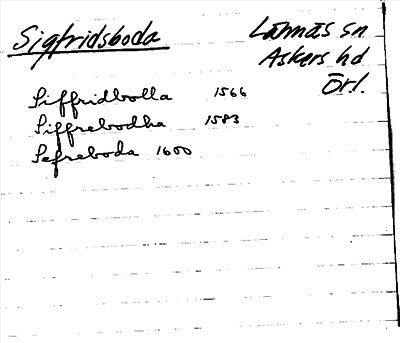 Sigfridsboda
Lännäs sn
Askers hd
Örl.
Siffridbolla 1566
Siffrebodha 1583
Sefreboda 1600